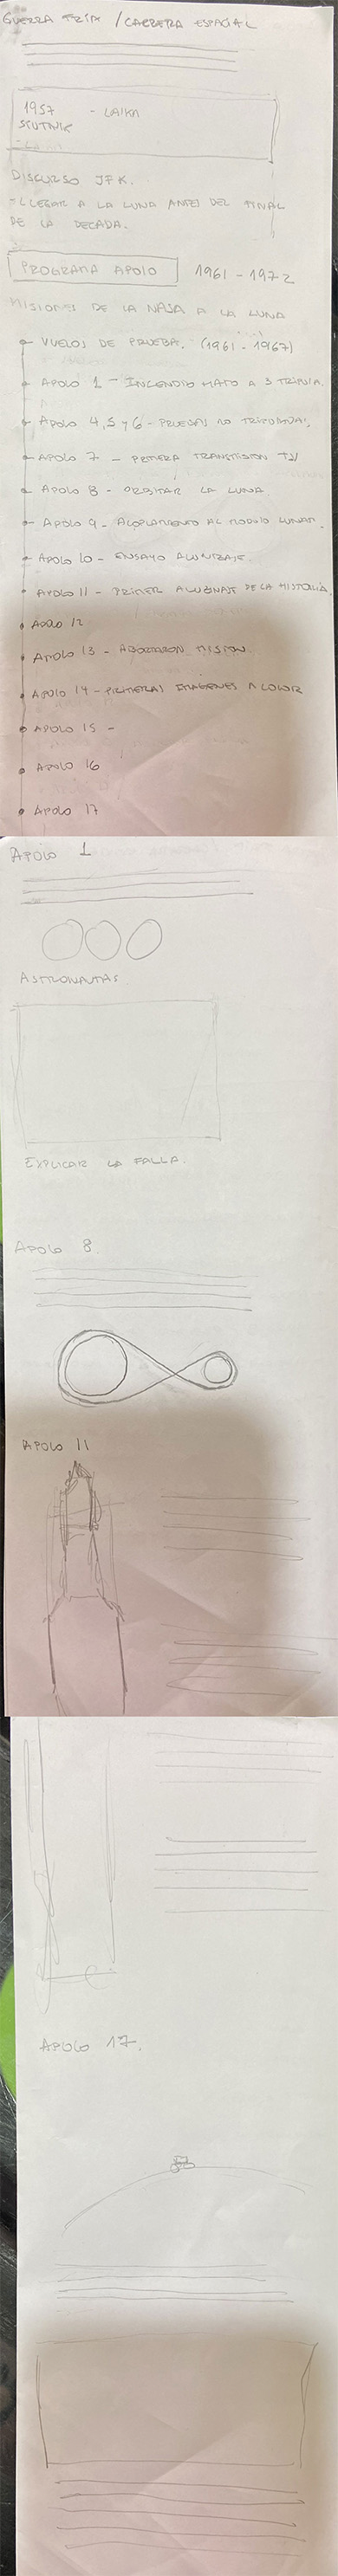 GUERRA FRÍA / CARRERA ESPACIAL
1957 - LAIKA
SPUTNIK
DISCURSO JFK.
- LLEGAR A LA LUNA ANTES DEL FINAL
DE LA DECADA.
PROGRAMA APOLO 1961 - 1972
MISIONES DE LA NASA A LA LUNA
VUELOS DE PRUEBA. (1961 - 1967)
APOLO 1 - INCENDIO MATO A 3 TRIPULA.
APOLO 4, 5 y 6 - PRUEBAS NO TRIPULADAS.
APOLO 7 - PRIMERA TRANSMISION TV
APOLO 8 - ORBITAR LA LUNA.
APOLO 9 - ACOPLAMIENTO AL MODULO LUNAR.
APOLO 10 - ENSAYO ALUNIZAJE.
APOLO 11 - PRIMER ALUNIZAJE DE LA HISTORIA.
APOLO 12
APOLO 13 - ABORTARON MISION
APOLO 14 - PRIMERAS IMÁGENES A COLOR
APOLO 15 -
APOLO 16
APOLO 17
APOLO 1
ASTRONAUTAS.
EXPLICAR LA FALLA.
APOLO 8.
APOLO 11
APOLO 17.